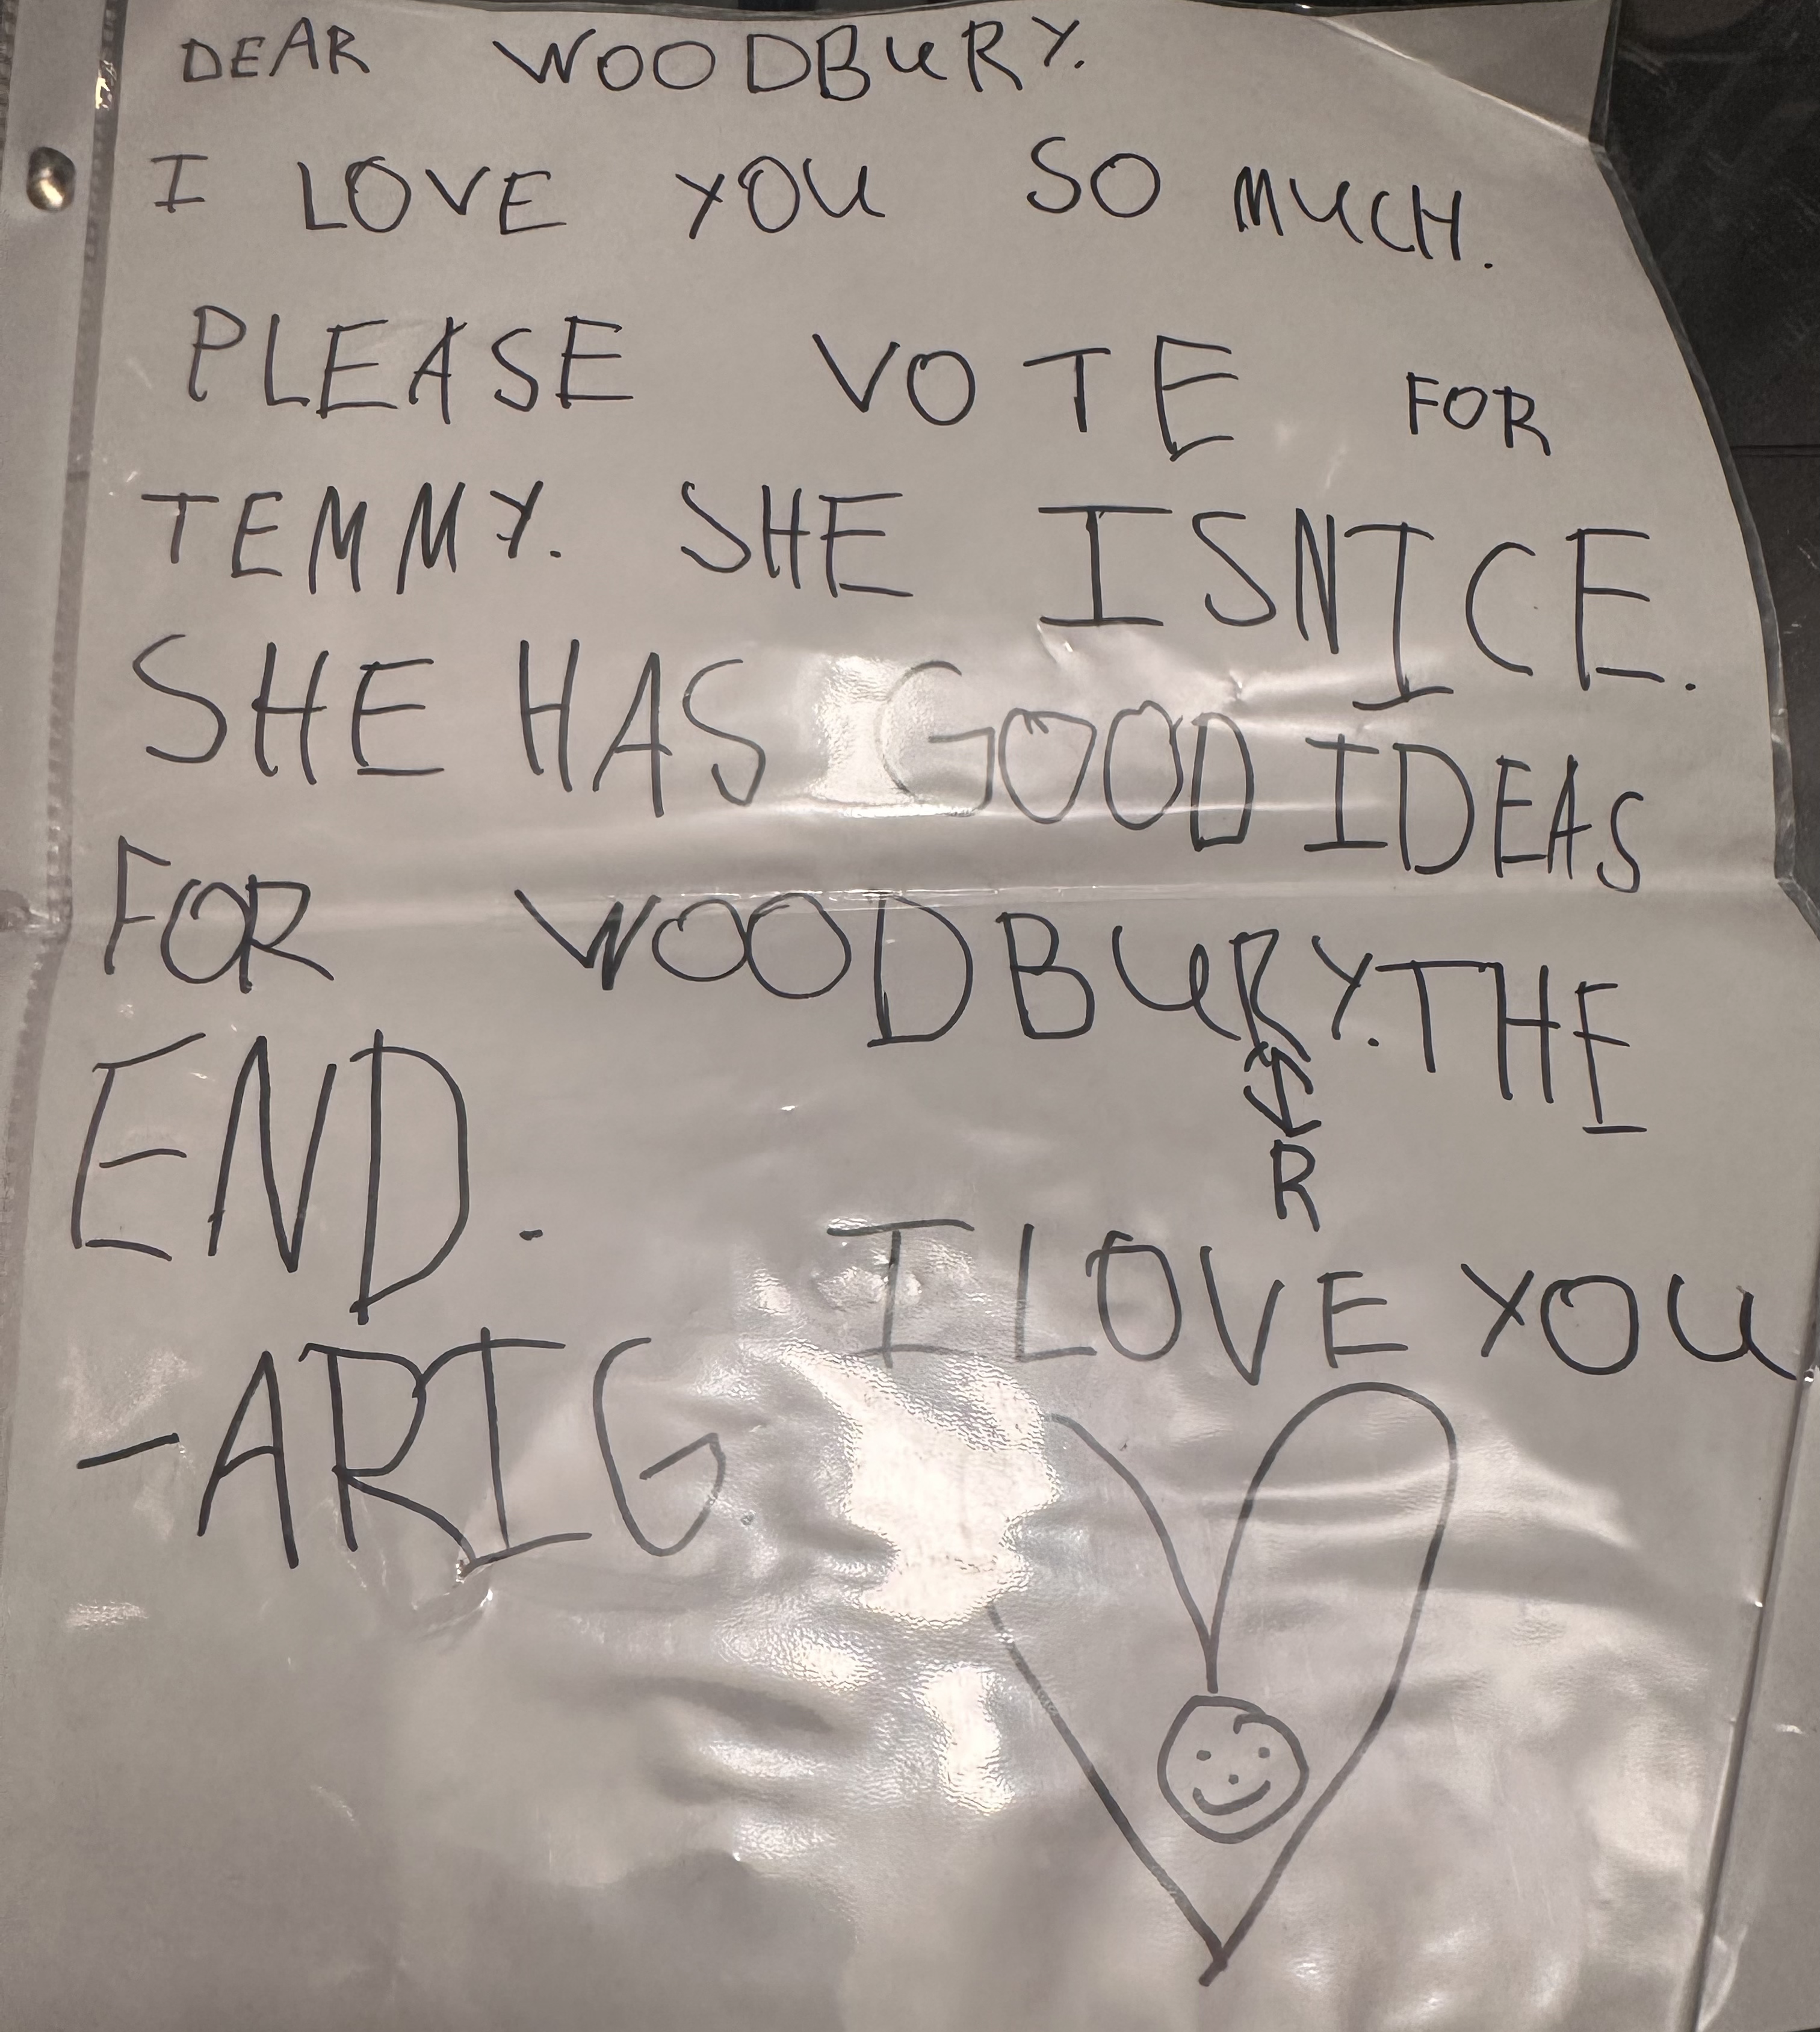 DEAR WOODBURY.
I LOVE YOU SO MUCH.
PLEASE VOTE FOR
TEMMY. SHE ISNICE.
SHE HAS GOOD IDEAS
FOR WOODBURY. THE
R
END.
I LOVE YOU
-ARIG.